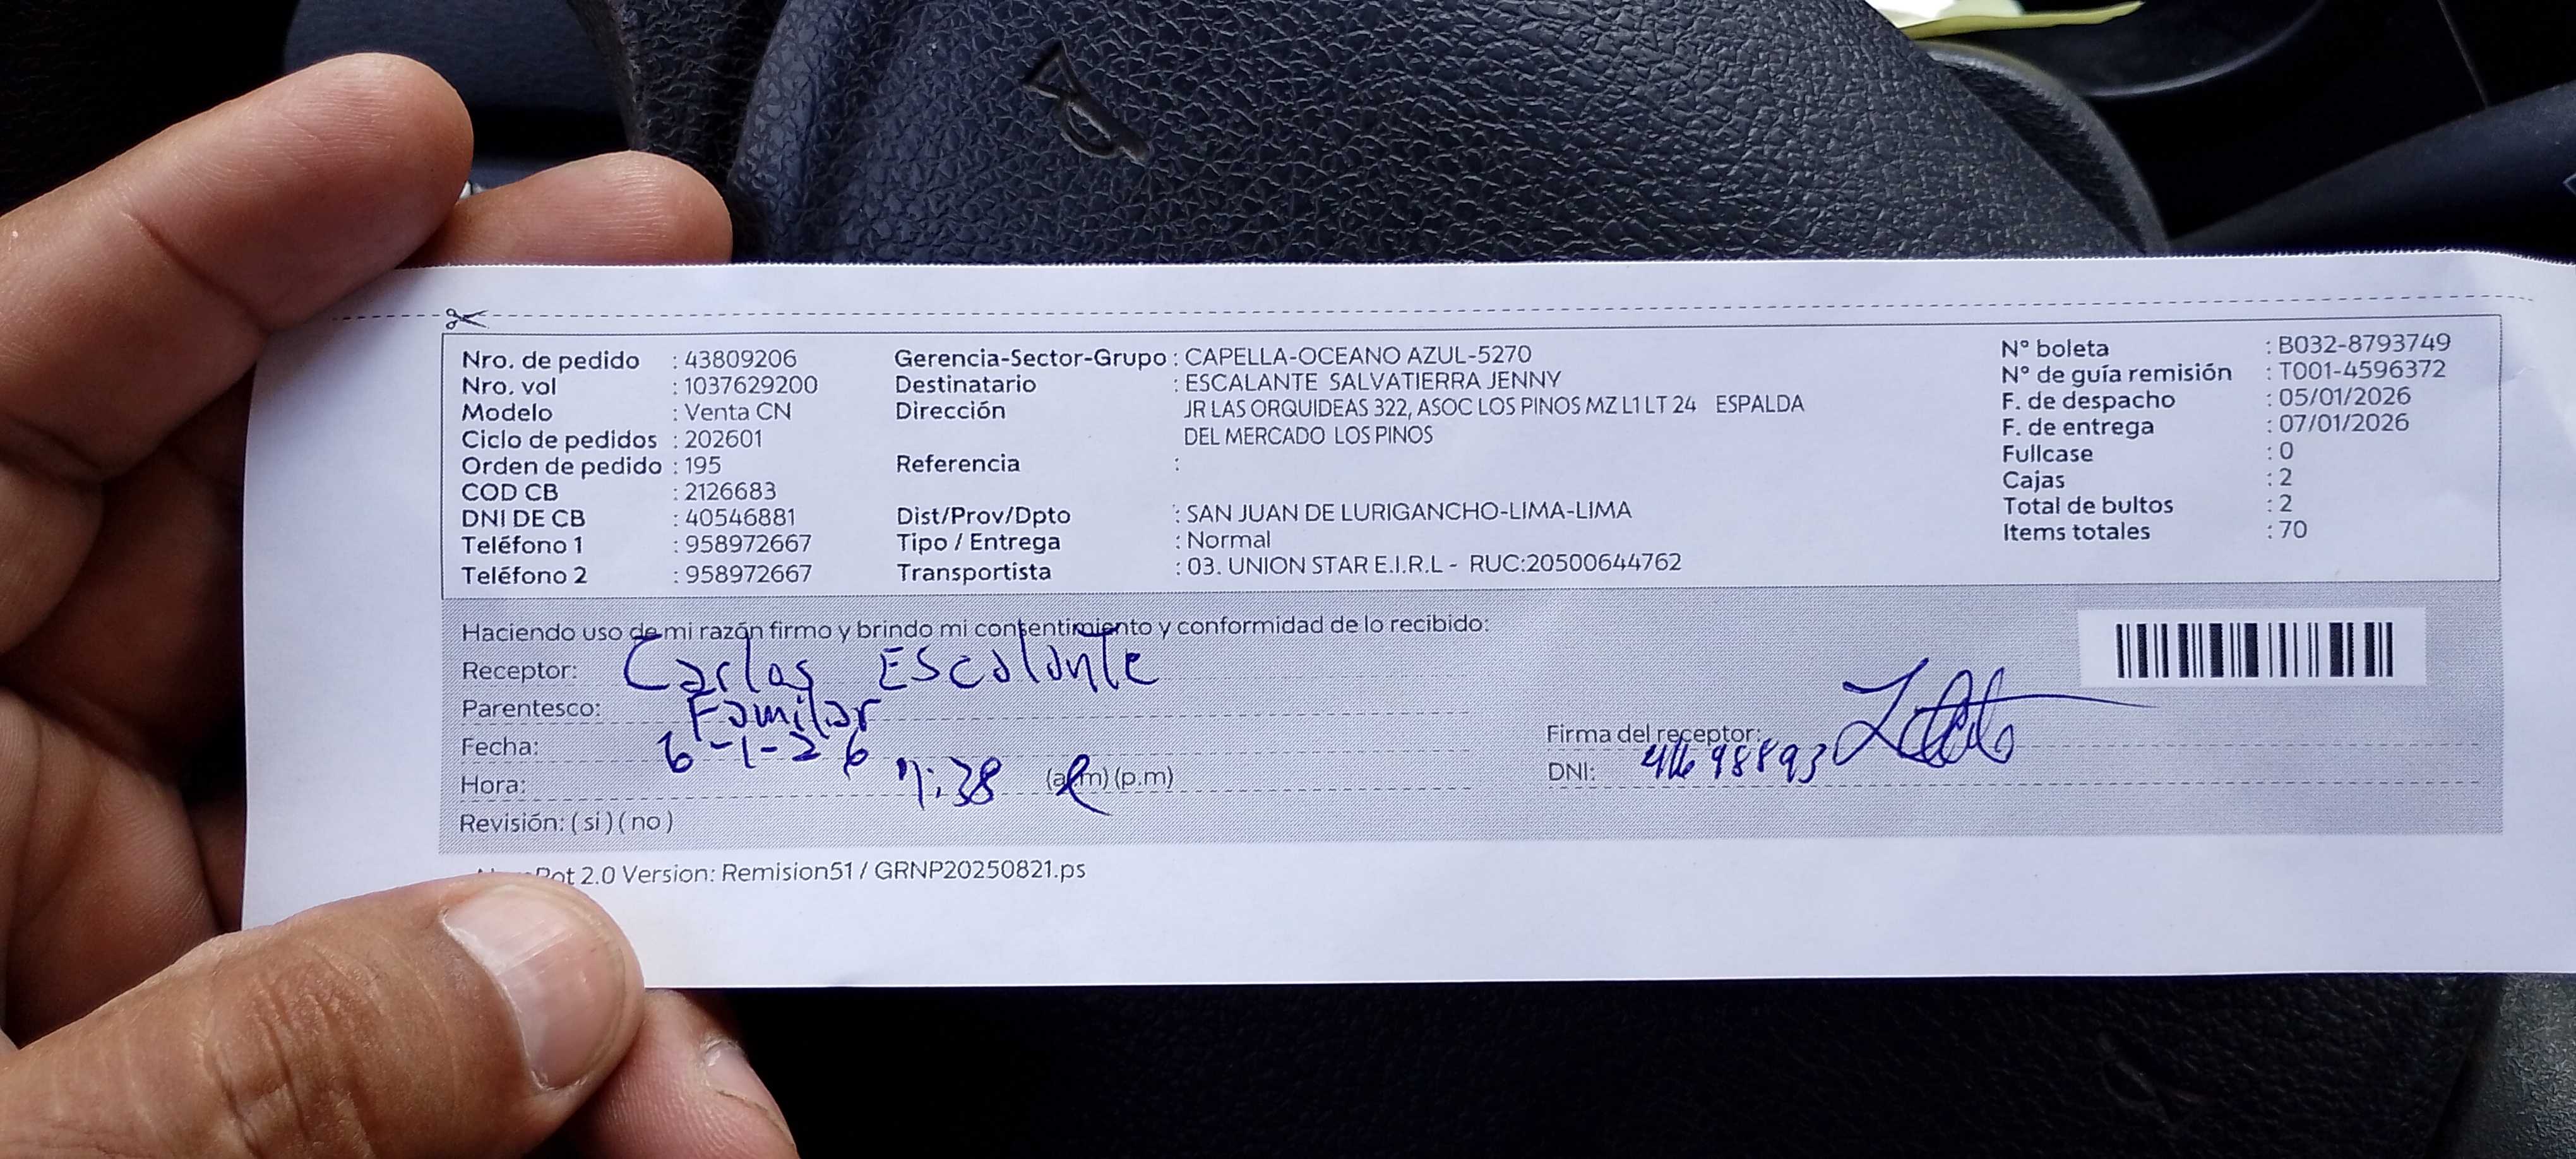 Nro. de pedido : 43809206
Nro. vol : 1037629200
Modelo : Venta CN
Ciclo de pedidos : 202601
Orden de pedido : 195
COD CB : 2126683
DNI DE CB : 40546881
Teléfono 1 : 958972667
Teléfono 2 : 958972667
Gerencia-Sector-Grupo : CAPELLA-OCEANO AZUL-5270
Destinatario : ESCALANTE SALVATIERRA JENNY
Dirección : JR LAS ORQUIDEAS 322, ASOC LOS PINOS MZ L1 LT 24 ESPALDA
DEL MERCADO LOS PINOS
Referencia :
Dist/Prov/Dpto : SAN JUAN DE LURIGANCHO-LIMA-LIMA
Tipo / Entrega : Normal
Transportista : 03. UNION STAR E.I.R.L - RUC:20500644762
N° boleta : B032-8793749
N° de guía remisión : T001-4596372
F. de despacho : 05/01/2026
F. de entrega : 07/01/2026
Fullcase : 0
Cajas : 2
Total de bultos : 2
Items totales : 70
Haciendo uso de mi razón firmo y brindo mi consentimiento y conformidad de lo recibido:
Receptor: Carlos Escalante
Parentesco: Familar
Fecha: 6-1-26
Hora: 7:38 (a.m) (p.m)
Revisión: ( si ) ( no )
Firma del receptor:
DNI:
2.0 Version: Remision51 / GRNP20250821.ps